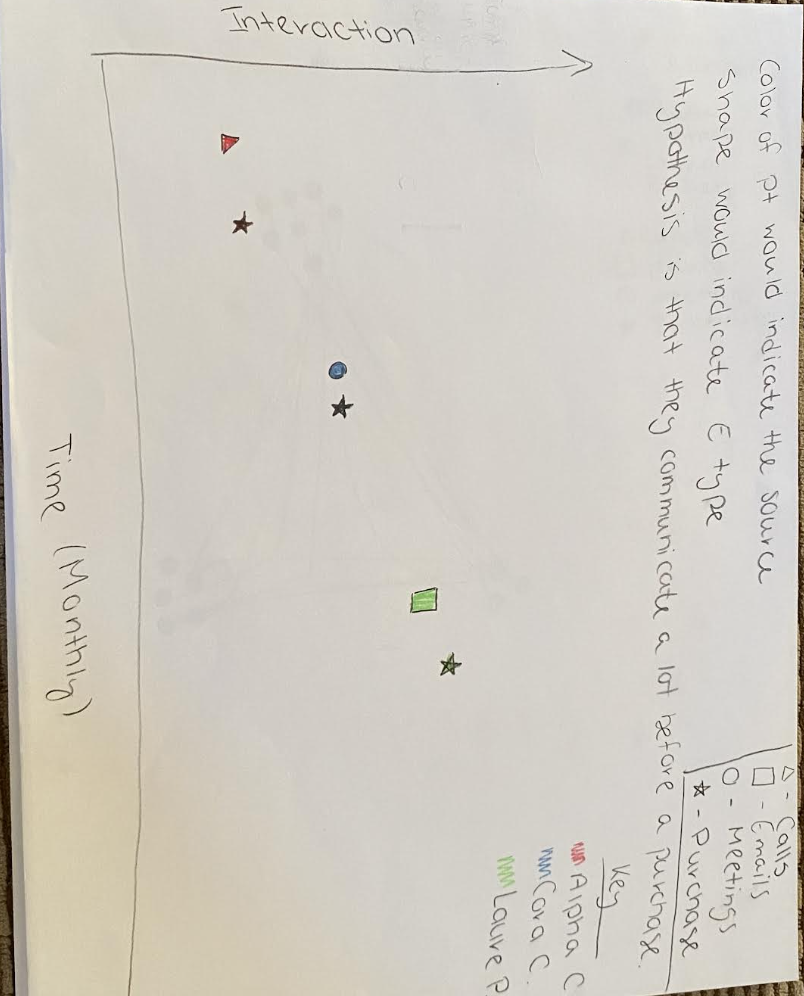 Color of pt would indicate the source
Shape would indicate E type
Hypothesis is that they communicate a lot before a purchase.
△ - Calls
□ - Emails
○ - Meetings
☆ - Purchase
Key
Alpha C
Cora C.
Laure P
Interaction
Time (Monthly)